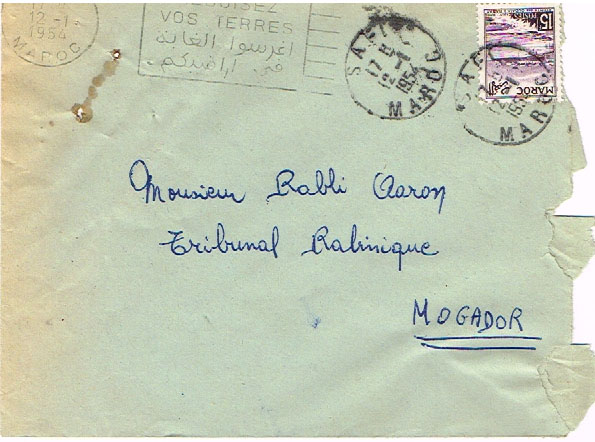 12-1-
1954
MAROC
VOS TERRES
اغرسوا الغابة
في اراضيكم
SAFI
17 5
12-1
1954
MAROC
15F
POSTES
MAROC
MAROC
Monsieur Rabbi Aaron
Tribunal Rabinique
MOGADOR